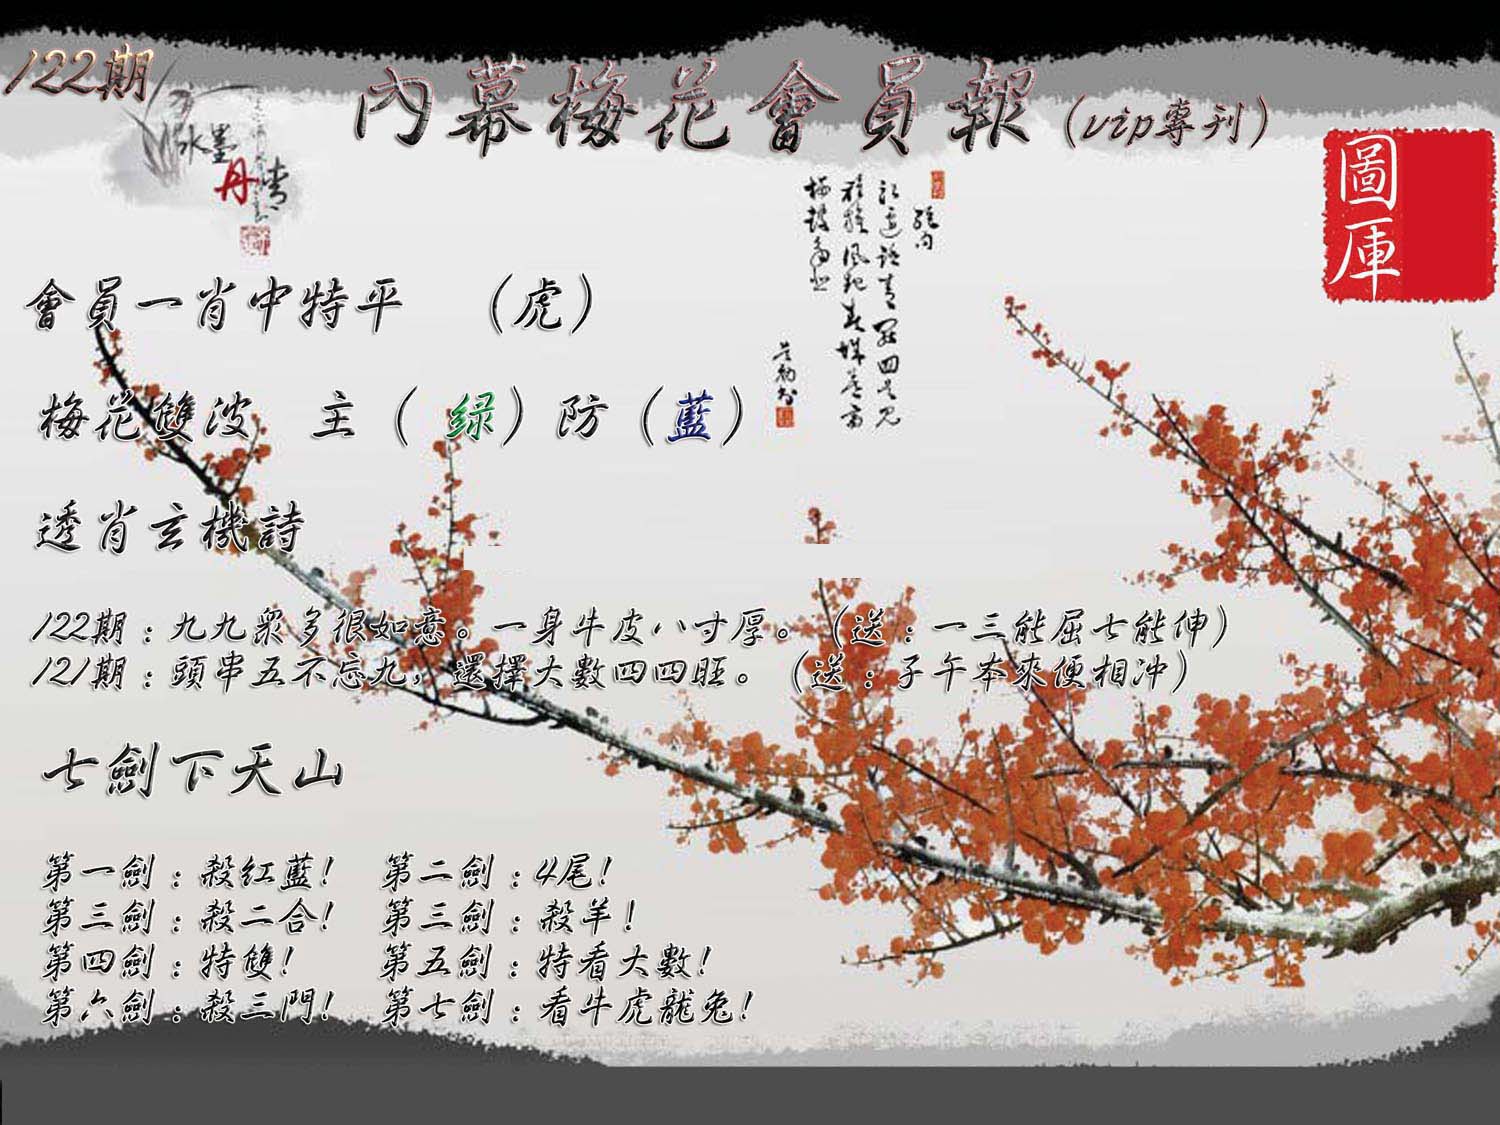 122期
內幕梅花會員報（vip專刊）
水墨
丹青
圖庫
會員一肖中特平　（虎）
梅花雙波　主（ 绿）防（藍）
透肖玄機詩
122期：九九眾多很如意。一身牛皮八寸厚。（送：一三能屈七能伸）
121期：頭串五不忘九，選擇大數四四旺。（送：子午本來便相冲）
七劍下天山
第一劍：殺紅藍！　第二劍：4尾！
第三劍：殺二合！　第三劍：殺羊！
第四劍：特雙！　第五劍：特看大數！
第六劍：殺三門！　第七劍：看牛虎龍兔！